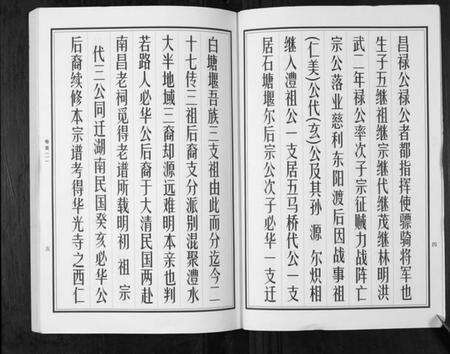 昌禄公禄公者都指挥使骠骑将军也
生子五继祖继宗继代继茂继林明洪
武二年禄公率次子宗征贼力战阵亡
宗公落业慈利东阳渡后因战事祖
(仁美)公代(亥)公及其孙源尔炽相
继入澧祖公一支居五马桥代公一支
居石塘堰尔后宗公次子必华一支迁
四
白塘堰吾族三支祖由此而分迄今二
十七传三祖后裔支分派别混聚澧水
大半地域三裔却源远难明本亲也判
若路人必华公后裔于大清民国两赴
南昌老祠觅得老谱所载明初祖宗
代三公同迁湖南民国癸亥必华公
后裔续修本宗谱考得华光寺之西仁
五